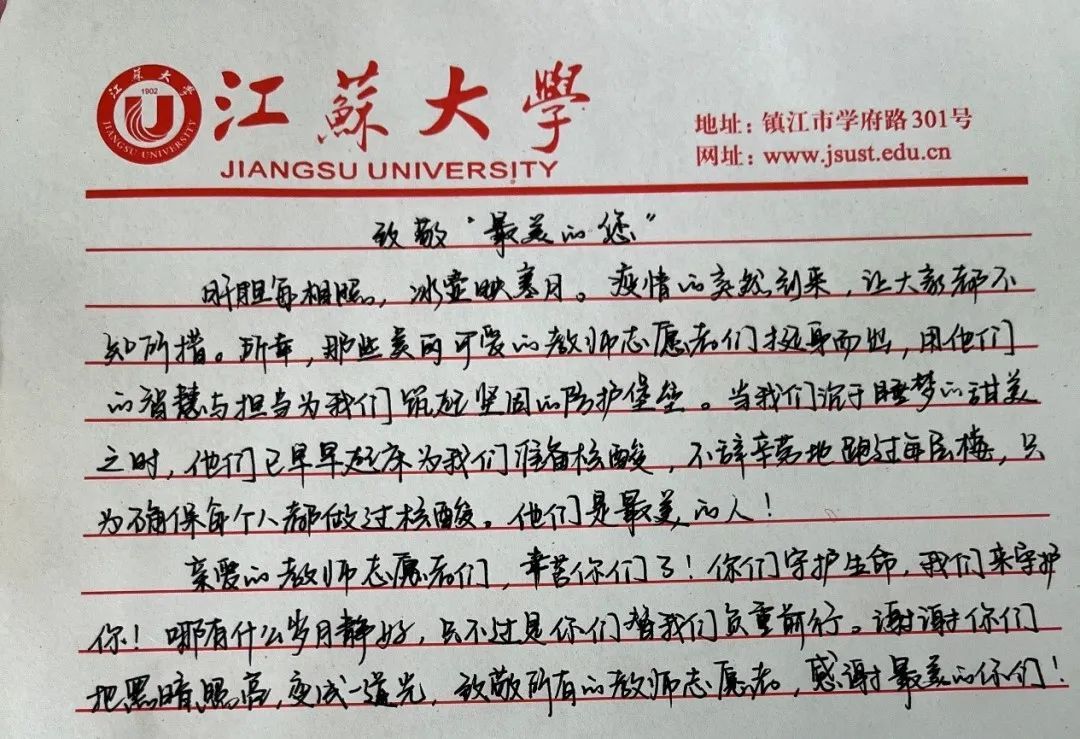 江蘇大學
JIANGSU UNIVERSITY
1902
江蘇大學
JIANGSU UNIVERSITY
地址：镇江市学府路301号
网址：www.jsust.edu.cn
致敬“最美的您”
肝胆每相照，冰壶映寒月。疫情的突然到来，让大家都不
知所措。所幸，那些美丽可爱的教师志愿者们挺身而出，用他们
的智慧与担当为我们筑起坚固的防护堡垒。当我们沉于睡梦的甜美
之时，他们已早早起床为我们准备核酸，不辞辛劳地跑过每层楼，只
为确保每个人都做过核酸。他们是最美的人！
亲爱的教师志愿者们，辛苦你们了！你们守护生命，我们来守护
你！哪有什么岁月静好，只不过是你们替我们负重前行。谢谢你们
把黑暗照亮，变成一道光，致敬所有的教师志愿者，感谢最美的你们！